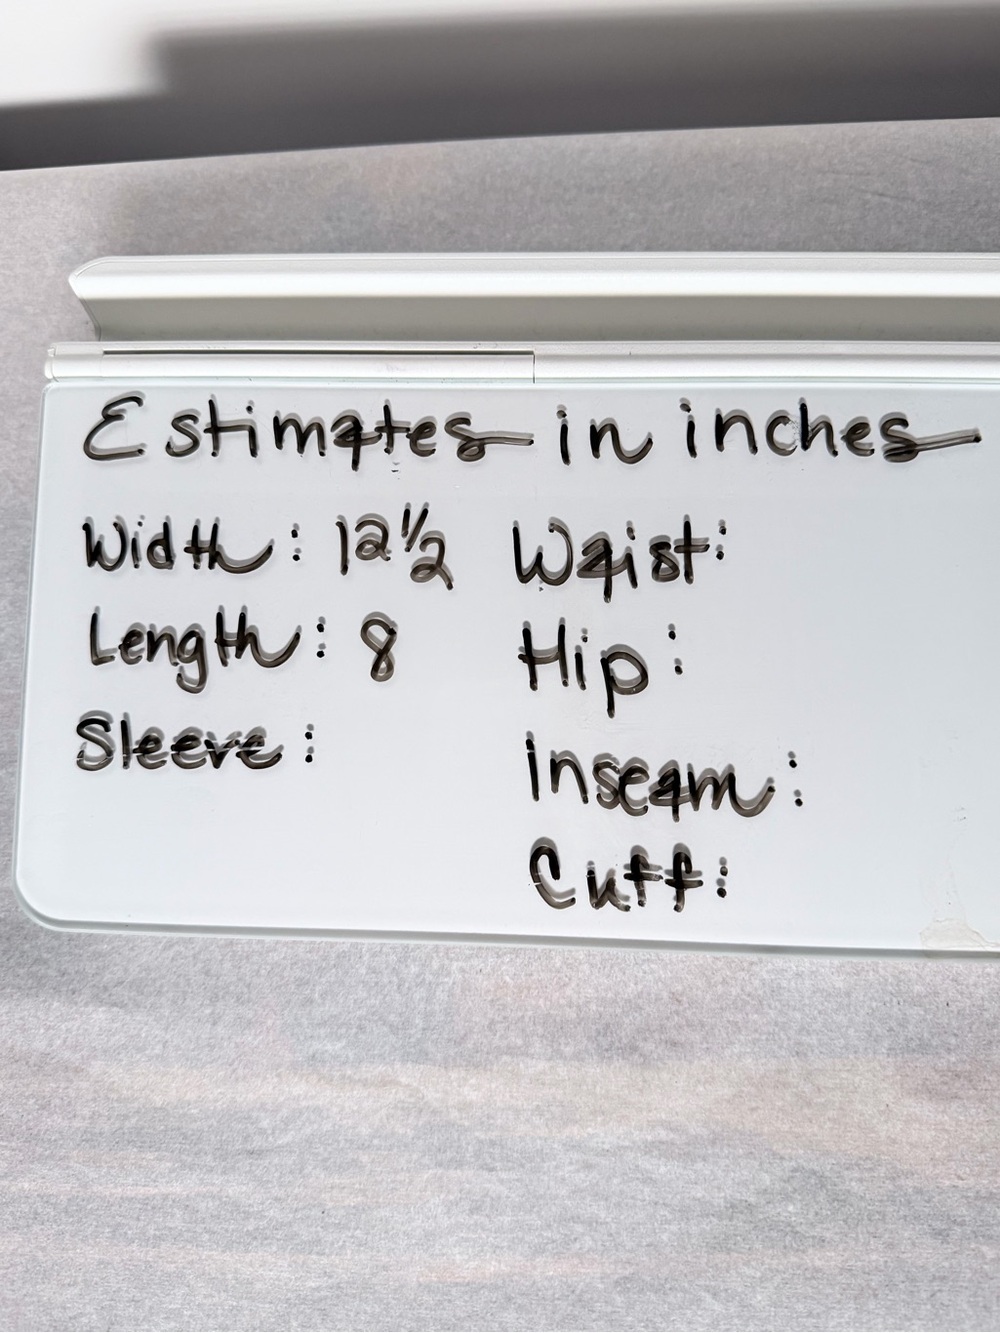 Estimates in inches
Width: 12 1/2
Length: 8
Sleeve:
Waist:
Hip:
Inseam:
Cuff: